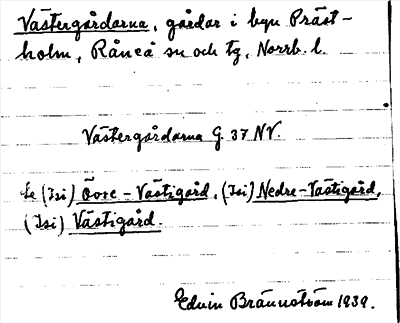 Västergårdarna, gårdar i byn Präst-
holm, Råneå sn och tg, Norrb. l.
Västergårdarna G. 37 NV.
Se (Isi) Övre-Västigård, (Isi) Nedre-Västigård,
(Isi) Västigård.
Edvin Brännström 1939.